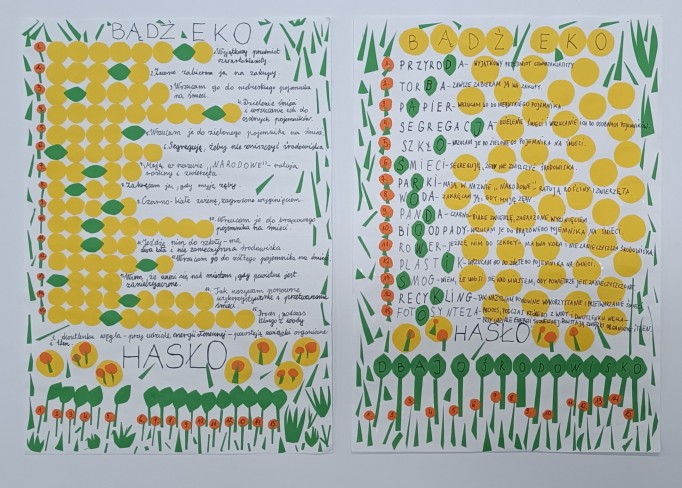 BĄDŹ EKO
1. Wyjątkowy przedmiot
2. Zawsze zabieram ją na zakupy.
3. Wrzucam go do niebieskiego pojemnika
na śmieci.
4. Dzielenie śmieci
i wrzucanie ich do
osobnych pojemników.
5. Wrzucam je do zielonego pojemnika na śmieci
6. Segreguję, żeby nie zanieczyścić środowiska
7. Mają w nazwie „NARODOWE" - ratują
rośliny i zwierzęta
8. Zakręcam ją, gdy myję zęby.
9. Czarno-białe zwierzę, zagrożone wyginięciem.
10. Wrzucam je do brązowego
pojemnika na śmieci
11. Jeżdżę nim do szkoły - ma
dwa koła i nie zanieczyszcza środowiska.
12. Wrzucam go do żółtego pojemnika na śmieci
13. Wiem, że unosi się nad miastem, gdy powietrze jest
zanieczyszczone.
14. Jak nazywam ponowne
wykorzystywanie i przetwarzanie
śmieci
15. Proces, podczas
którego z wody
i dwutlenku węgla - przy udziale energii słonecznej - powstają związki organiczne
i tlen.
HASŁO
1 2 3 4 5 6 7 8 9 10 11 12 13 14 15
BĄDŹ EKO
1 PRZYRODA - WYJĄTKOWY PRZEDMIOT
2 TORBA - ZAWSZE ZABIERAM JĄ NA ZAKUPY.
3 PAPIER - WRZUCAM GO DO NIEBIESKIEGO POJEMNIKA.
4 SEGREGACJA - DZIELENIE ŚMIECI I WRZUCANIE ICH DO OSOBNYCH POJEMNIKÓW.
5 SZKŁO - WRZUCAM JE DO ZIELONEGO POJEMNIKA NA ŚMIECI.
6 ŚMIECI - SEGREGUJĘ, ŻEBY NIE ZANIECZYŚCIĆ ŚRODOWISKA.
7 PARKI - MAJĄ W NAZWIE „NARODOWE" - RATUJĄ ROŚLINY I ZWIERZĘTA
8 WODA - ZAKRĘCAM JĄ, GDY MYJĘ ZĘBY.
9 PANDA - CZARNO-BIAŁE ZWIERZĘ, ZAGROŻONE WYGINIĘCIEM
10 BIOODPADY - WRZUCAM JE DO BRĄZOWEGO POJEMNIKA NA ŚMIECI.
11 ROWER - JEŻDŻĘ NIM DO SZKOŁY - MA DWA KOŁA I NIE ZANIECZYSZCZA ŚRODOWISKA
12 PLASTIK - WRZUCAM GO DO ŻÓŁTEGO POJEMNIKA NA ŚMIECI.
13 SMOG - WIEM, ŻE UNOSI SIĘ NAD MIASTEM, GDY POWIETRZE JEST ZANIECZYSZCZONE.
14 RECYKLING - JAK NAZYWAM PONOWNE WYKORZYSTYWANIE I PRZETWARZANIE ŚMIECI
15 FOTOSYNTEZA - PROCES, PODCZAS KTÓREGO Z WODY I DWUTLENKU WĘGLA -
PRZY UDZIALE ENERGII SŁONECZNEJ - POWSTAJĄ ZWIĄZKI ORGANICZNE I TLEN.
HASŁO
DBAJ O ŚRODOWISKO